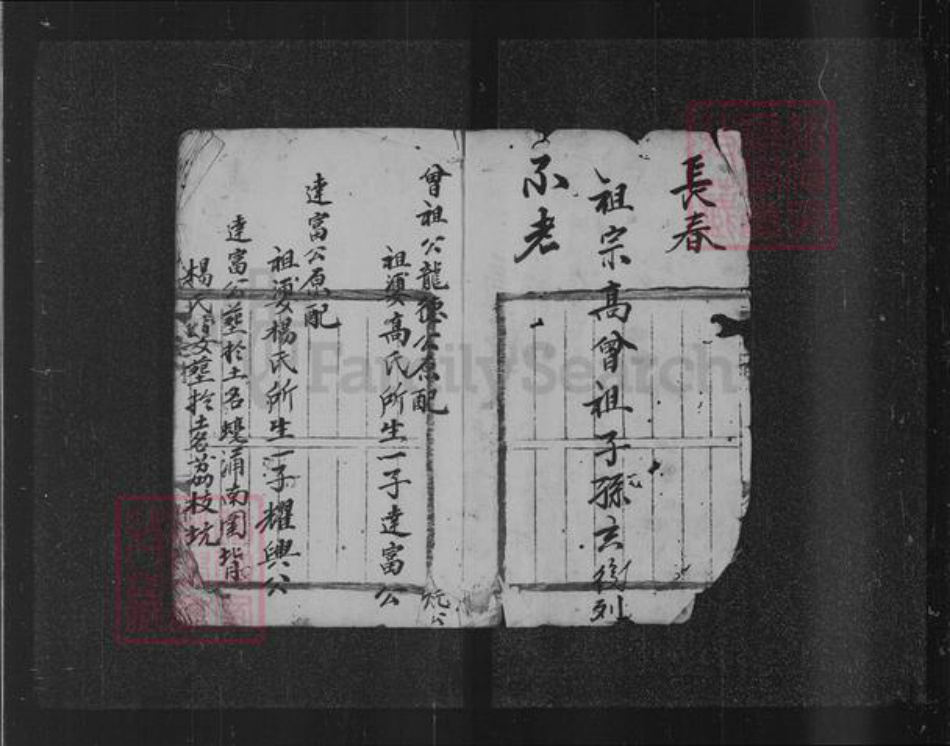 長春
祖宗高曾祖子孫玄後列
不老
曾祖公龍德公原配
祖婆高氏所生一子達富公
達富公原配
祖婆楊氏所生一子耀興公
達富公塟於土名 涌南圍背
楊氏婆塟於土名荔枝坑
FamilySearch